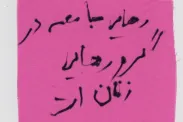 رهایی جامعه در
گرو رهایی
زنان است